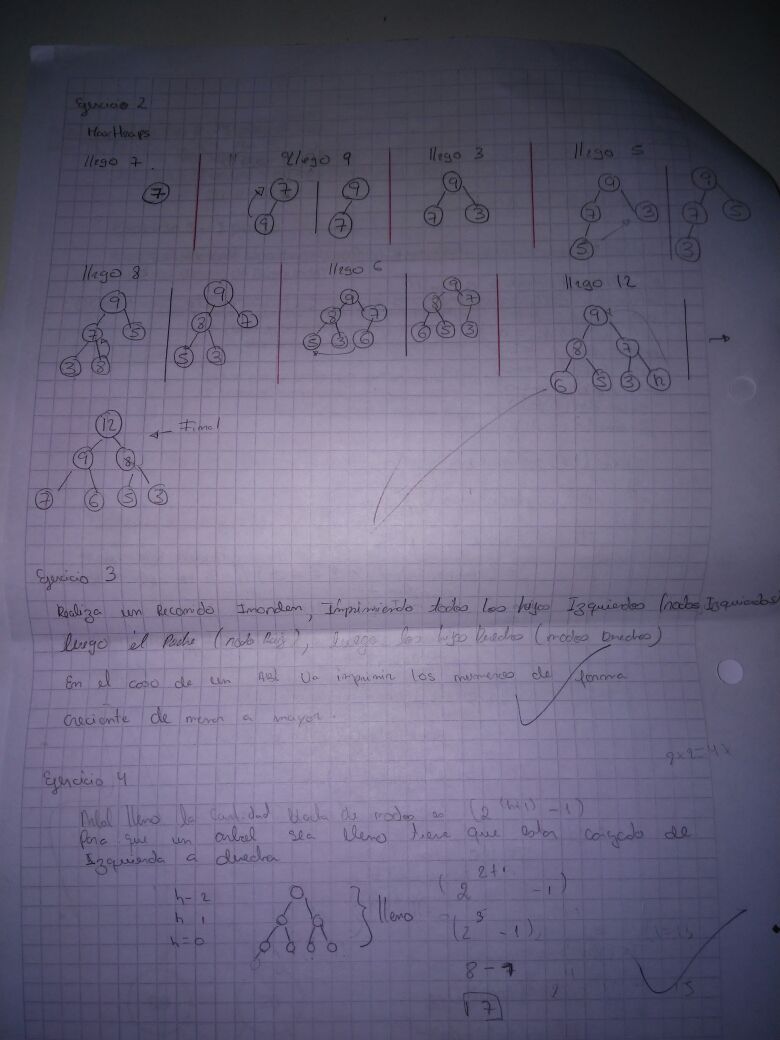 Ejercicio 2
MaxHeaps
llego 7
7
llego 9
7
9
9
7
llego 3
9
7 3
llego 5
9
7 3
5
9
7 5
3
llego 8
9
7 5
3 8
9
8 7
5 3
llego 6
9
8 7
5 3 6
9
8 7
6 5 3
llego 12
9
8 7
6 5 3 12
12
9 8
7 6 5 3
← Final
Ejercicio 3
Realiza un Recorrido Inorden, Imprimiendo todos los hijos Izquierdos (nodos Izquierdos)
luego el Padre (nodo Raiz), luego los hijos Derechos (nodos Derechos)
En el caso de un ABB va imprimir los numeros de forma
creciente de menor a mayor.
Ejercicio 4
Arbol lleno la cantidad de nodos es (2^(h+1) - 1)
Para que un arbol sea lleno tiene que estar cargado de
Izquierda a derecha
h=2
h 1
h=0
lleno
(2^2+1 - 1)
8 - 7
7